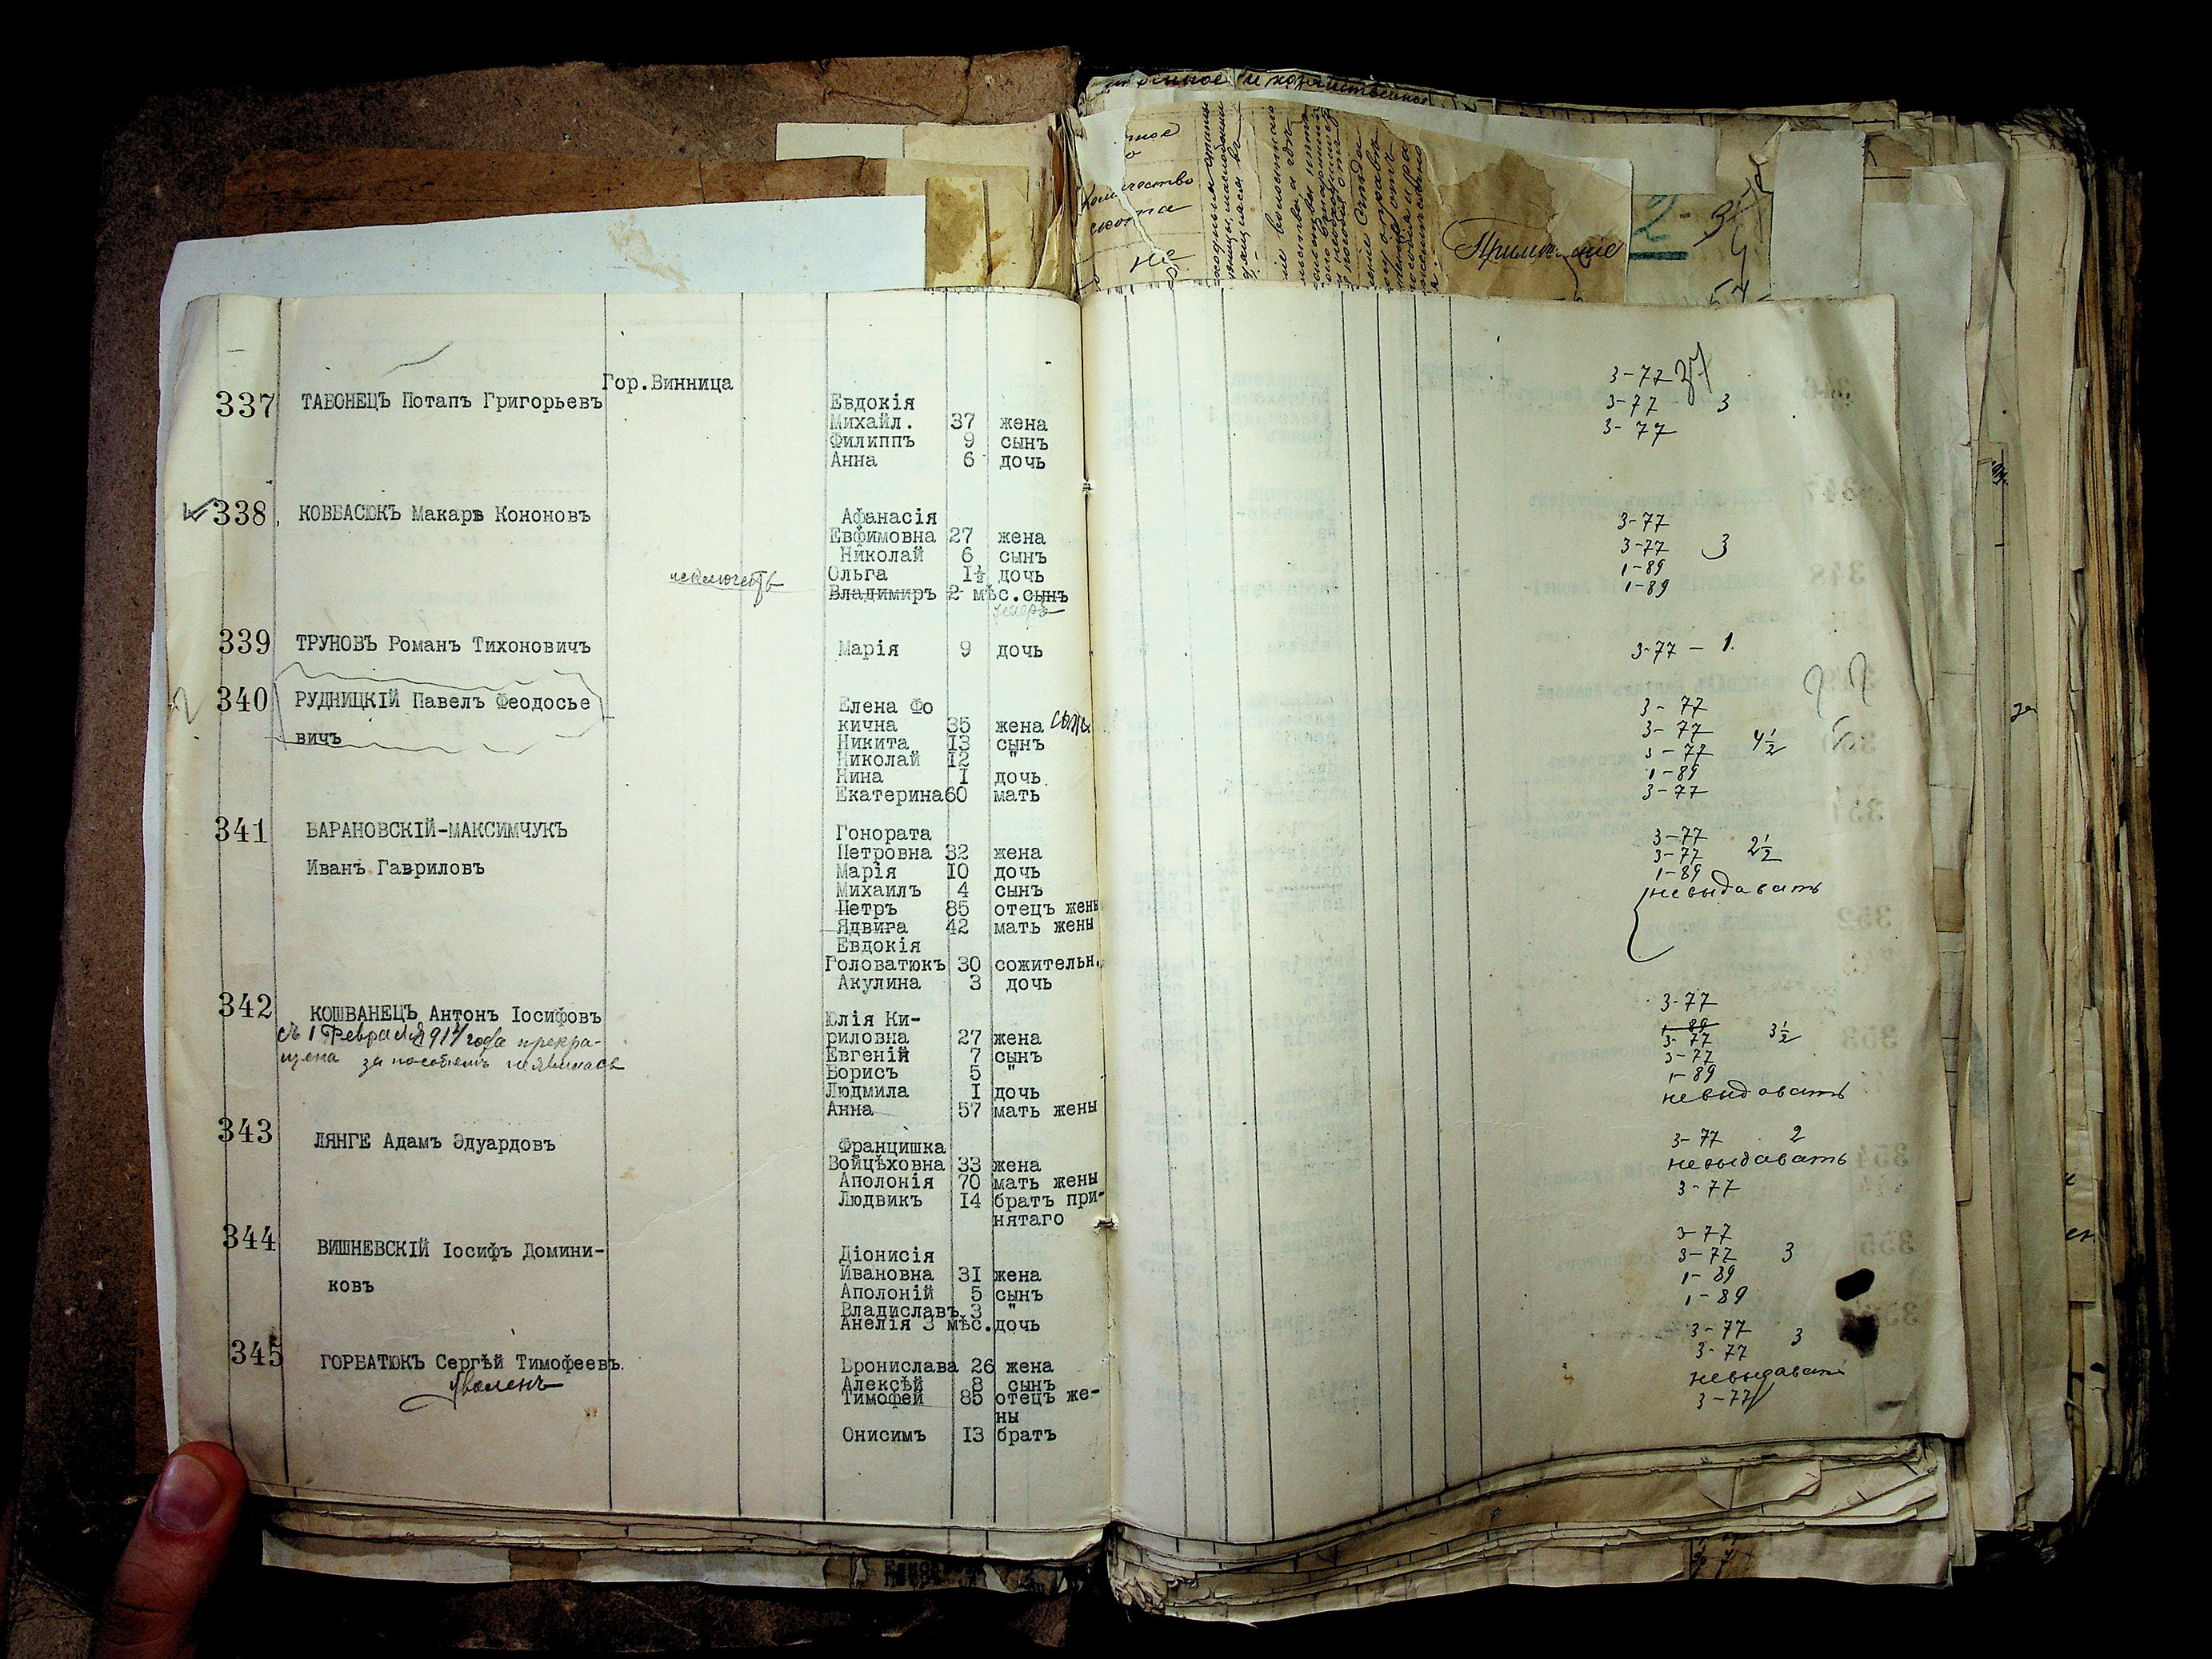 Гор.Винница
337 ТАБОНЕЦЪ Потапъ Григорьевъ
Евдокія
Михайл. 37 жена
Филиппъ 9 сынъ
Анна 6 дочь
3-77
3-77 3
3-77
338 КОВБАСЮКЪ Макаръ Кононовъ
Афанасія
Евфимовна 27 жена
Николай 6 сынъ
Ольга I½ дочь
Владимиръ 2 мѣс. сынъ
3-77
3-77 3
1-89
1-89
339 ТРУНОВЪ Романъ Тихоновичъ Марія 9 дочь 3-77 - 1.
340 РУДНИЦКІЙ Павелъ Феодосье
вичъ
Елена Фо
кична 35 жена
Никита I3 сынъ
Николай I2 "
Нина I дочь
Екатерина 60 мать
3-77
3-77
3-77 4½
1-89
3-77
341 БАРАНОВСКІЙ-МАКСИМЧУКЪ
Иванъ Гавриловъ
Гонората
Петровна 32 жена
Марія I0 дочь
Михаилъ 4 сынъ
Петръ 85 отецъ жены
Ядвига 42 мать жены
Евдокія
Головатюкъ 30 сожительн.
Акулина 3 дочь
3-77
3-77 2½
1-89
невыдавать
342 КОШВАНЕЦЪ Антонъ Іосифовъ
съ 1 Февраля 1917 года прекра-
щена за пособіемъ не явилась
Юлія Ки-
риловна 27 жена
Евгеній 7 сынъ
Борисъ 5 "
Людмила I дочь
Анна 57 мать жены
3-77
1-89
3-77 3½
3-77
1-89
невыдавать
343 ЛЯНГЕ Адамъ Эдуардовъ
Францишка
Войцѣховна 33 жена
Аполонія 70 мать жены
Людвикъ I4 братъ при-
нятаго
3-77 2
невыдавать
3-77
344 ВИШНЕВСКІЙ Іосифъ Домини-
ковъ
Діонисія
Ивановна 3I жена
Аполоній 5 сынъ
Владиславъ 3 "
Анелія 3 мѣс. дочь
3-77
3-77 3
1-89
1-89
345 ГОРБАТЮКЪ Сергѣй Тимофеевъ.
Бронислава 26 жена
Алексѣй 8 сынъ
Тимофей 85 отецъ же-
ны
Онисимъ I3 братъ
3-77 3
3-77
невыдавать
3-77
Примѣчаніе